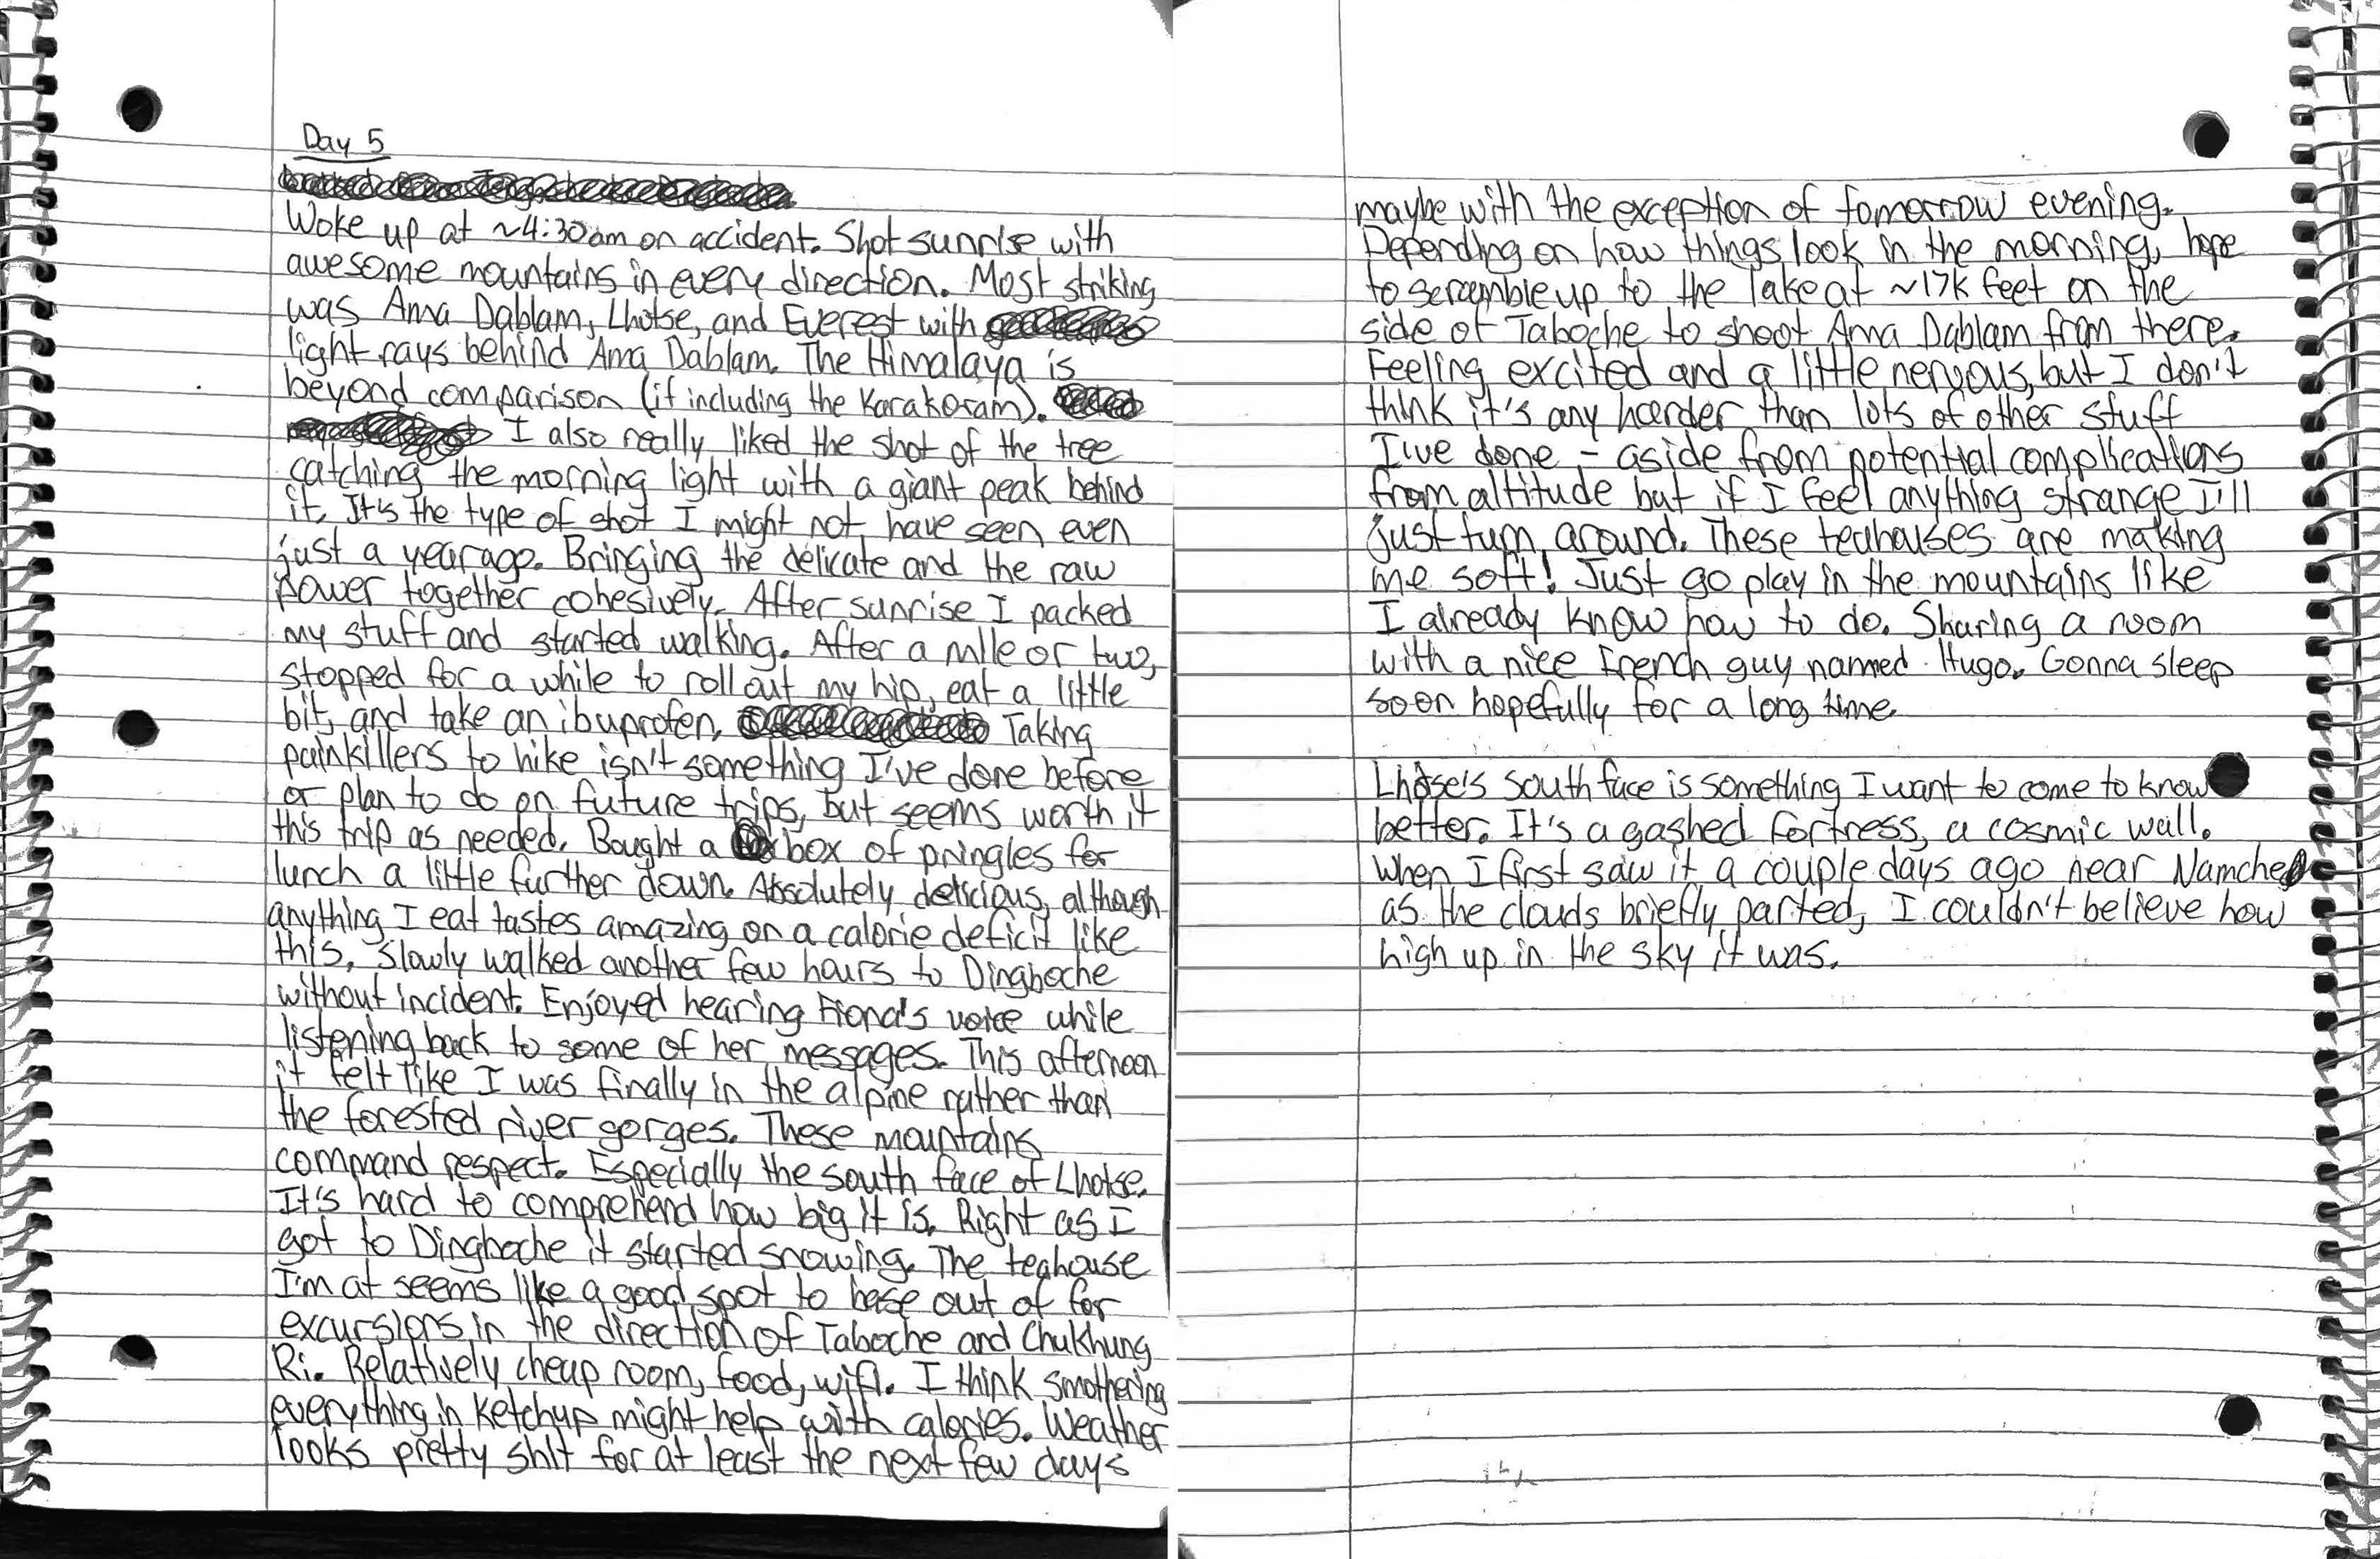 Day 5
Woke up at ~4:30am on accident. Shot sunrise with
awesome mountains in every direction. Most striking
was Ama Dablam, Lhotse, and Everest with
light rays behind Ama Dablam. The Himalaya is
beyond comparison (if including the Karakoram).
I also really liked the shot of the tree
catching the morning light with a giant peak behind
it. It's the type of shot I might not have seen even
just a year ago. Bringing the delicate and the raw
power together cohesively. After sunrise I packed
my stuff and started walking. After a mile or two,
stopped for a while to roll out my hip, eat a little
bit, and take an ibuprofen. Taking
painkillers to hike isn't something I've done before
or plan to do on future trips, but seems worth it
this trip as needed. Bought a box of pringles for
lunch a little further down. Absolutely delicious, although
anything I eat tastes amazing on a calorie deficit like
this. Slowly walked another few hours to Dingboche
without incident. Enjoyed hearing Fiona's voice while
listening back to some of her messages. This afternoon
it felt like I was finally in the alpine rather than
the forested river gorges. These mountains
command respect. Especially the south face of Lhotse.
It's hard to comprehend how big it is. Right as I
got to Dingboche it started snowing. The teahouse
I'm at seems like a good spot to base out of for
excursions in the direction of Taboche and Chukhung
Ri. Relatively cheap room, food, wifi. I think smothering
everything in ketchup might help with calories. Weather
looks pretty shit for at least the next few days
maybe with the exception of tomorrow evening.
Depending on how things look in the morning, hope
to scramble up to the lake at ~17k feet on the
side of Taboche to shoot Ama Dablam from there.
Feeling excited and a little nervous, but I don't
think it's any harder than lots of other stuff
I've done - aside from potential complications
from altitude but if I feel anything strange I'll
just turn around. These teahouses are making
me soft! Just go play in the mountains like
I already know how to do. Sharing a room
with a nice French guy named Hugo. Gonna sleep
soon hopefully for a long time.
Lhotse's south face is something I want to come to know
better. It's a gashed fortress, a cosmic wall.
When I first saw it a couple days ago near Namche
as the clouds briefly parted, I couldn't believe how
high up in the sky it was.